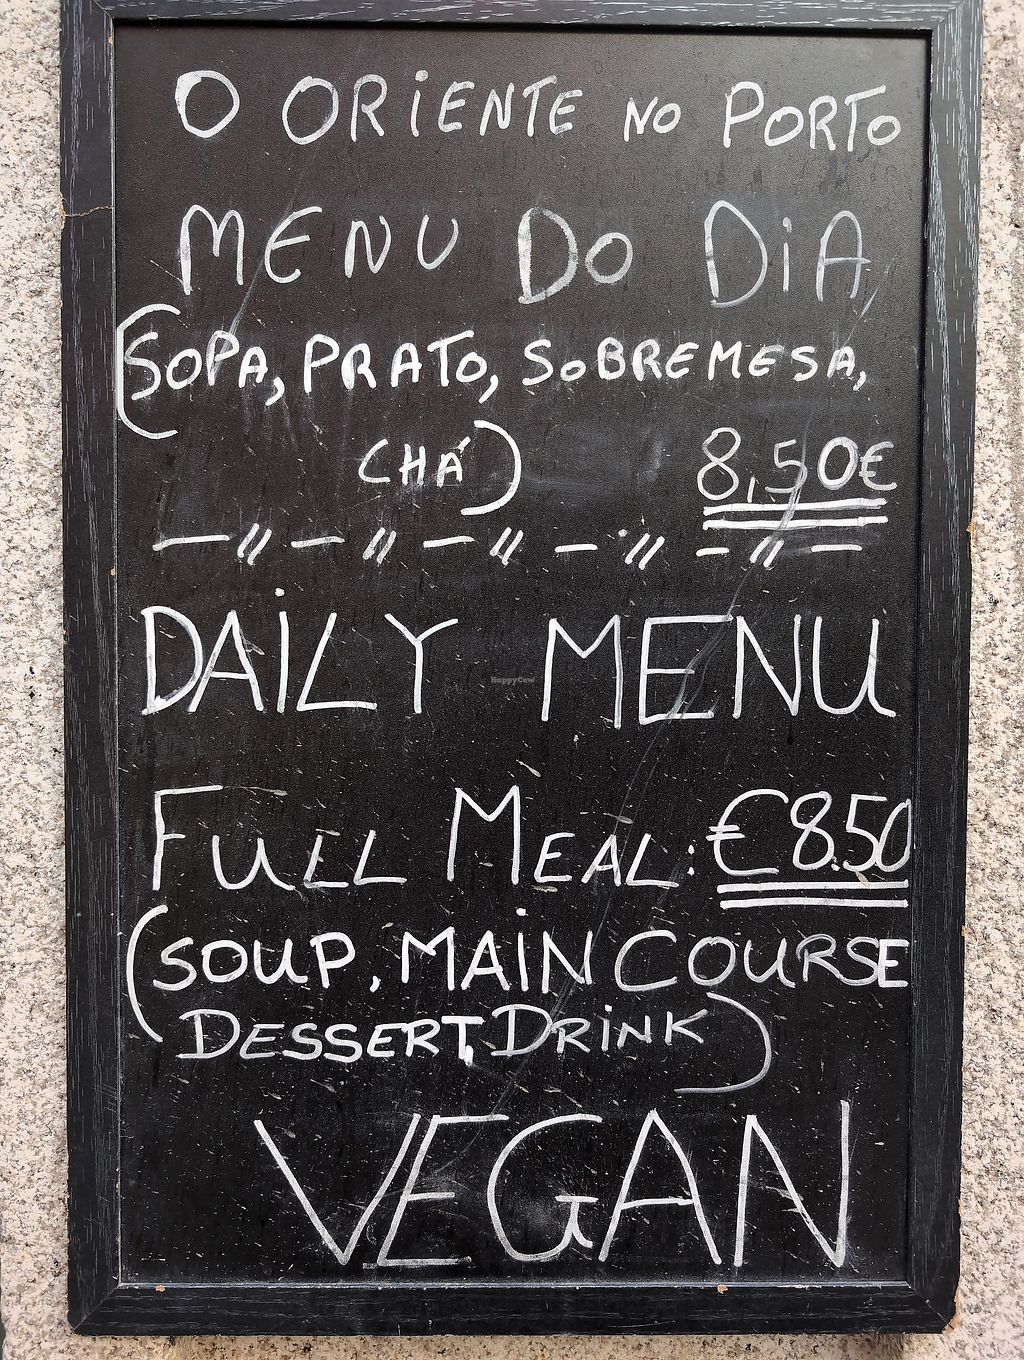 O ORiENTE NO PORTO
MENU DO DiA
(SOPA, PRATO, SOBREMESA,
CHÁ) 8,50€
DAiLY MENU
HappyCow
FULL MEAL: €8.50
(SOUP, MAiN COURSE
DESSERT, DRiNK)
VEGAN